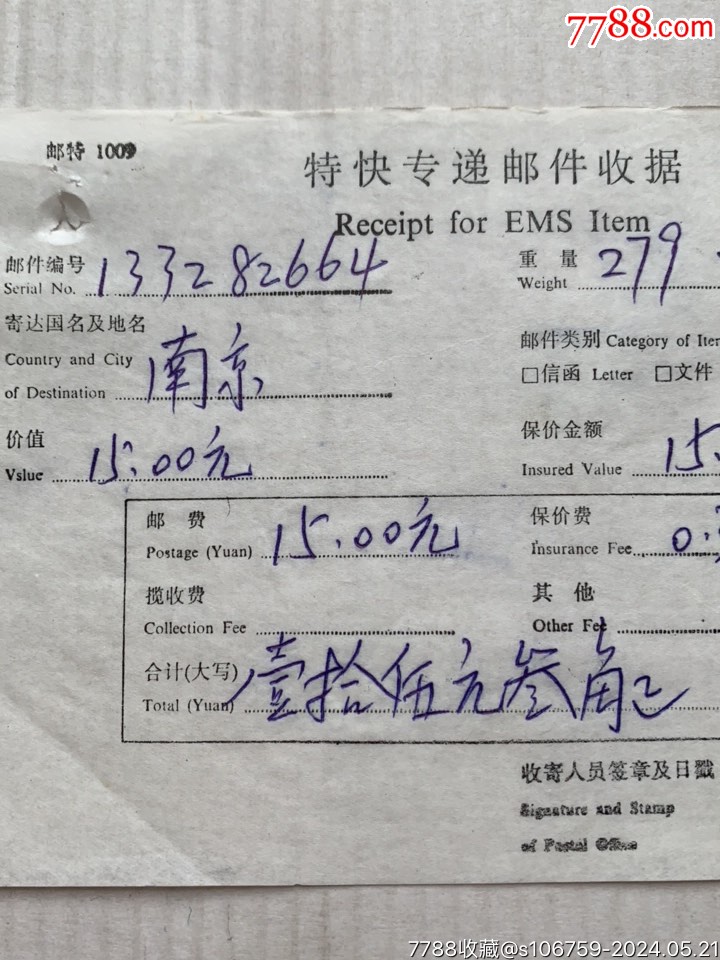 7788.com
邮特 1009
特快专递邮件收据
Receipt for EMS Item
邮件编号 133282664
Serial No.
重量 279
Weight
寄达国名及地名
Country and City
of Destination 南京
邮件类别 Category of Iter
□信函 Letter □文件
价值
Vslue 15.00元
保价金额
Insured Value 15.
邮费
Postage (Yuan) 15.00元
保价费
Insurance Fee 0.
揽收费
Collection Fee
其他
Other Fee
合计(大写) 壹拾伍元叁角
Total (Yuan)
收寄人员签章及日戳
Signature and Stamp
of Postal Office
7788收藏@s106759-2024.05.21